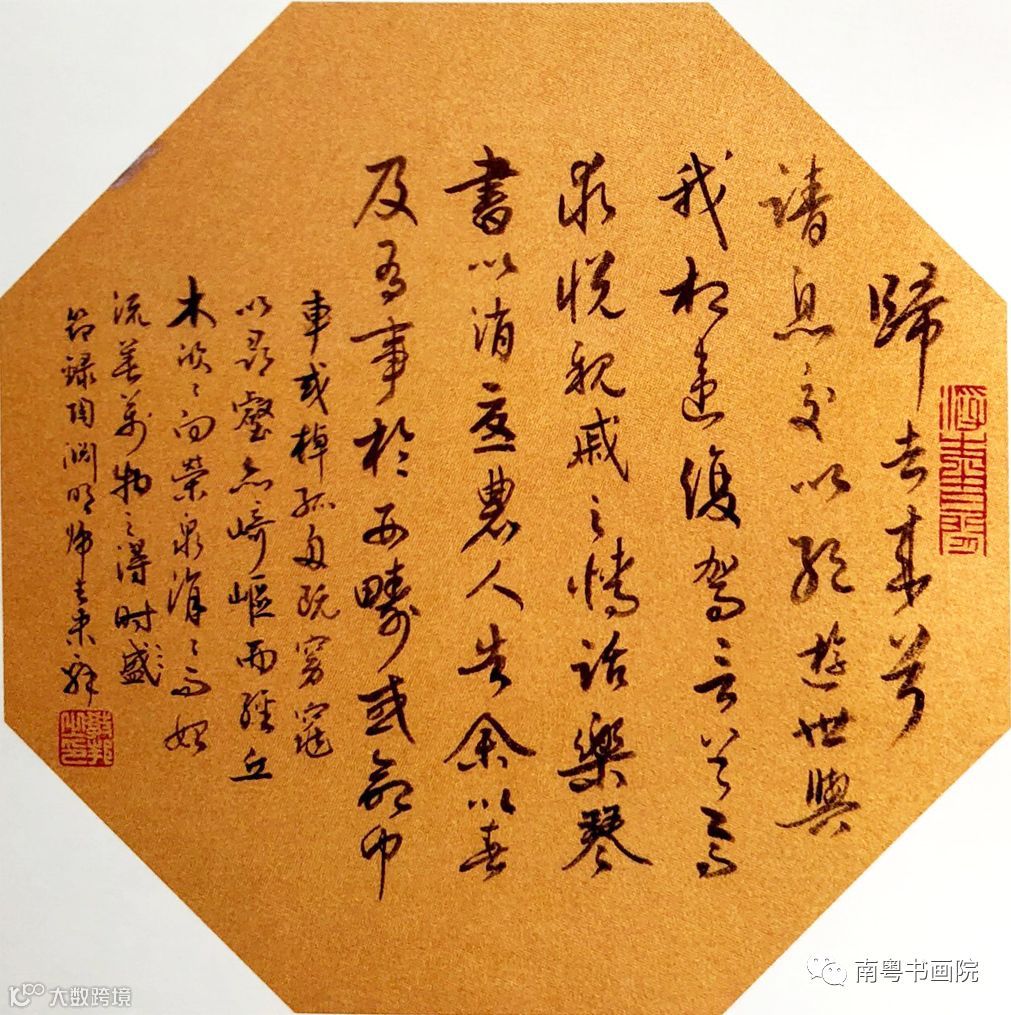 歸去來兮
請息交以絕遊世與
我相違復駕言兮焉
求悅親戚之情話樂琴
書以消憂農人告余以春
及有事於西疇或命巾
車或棹孤舟既窈窕
以尋壑亦崎嶇而經丘
木欣欣向榮泉涓涓而始
流善萬物之得时盛
節録陶淵明歸去來辞
南粤书画院
大数跨境